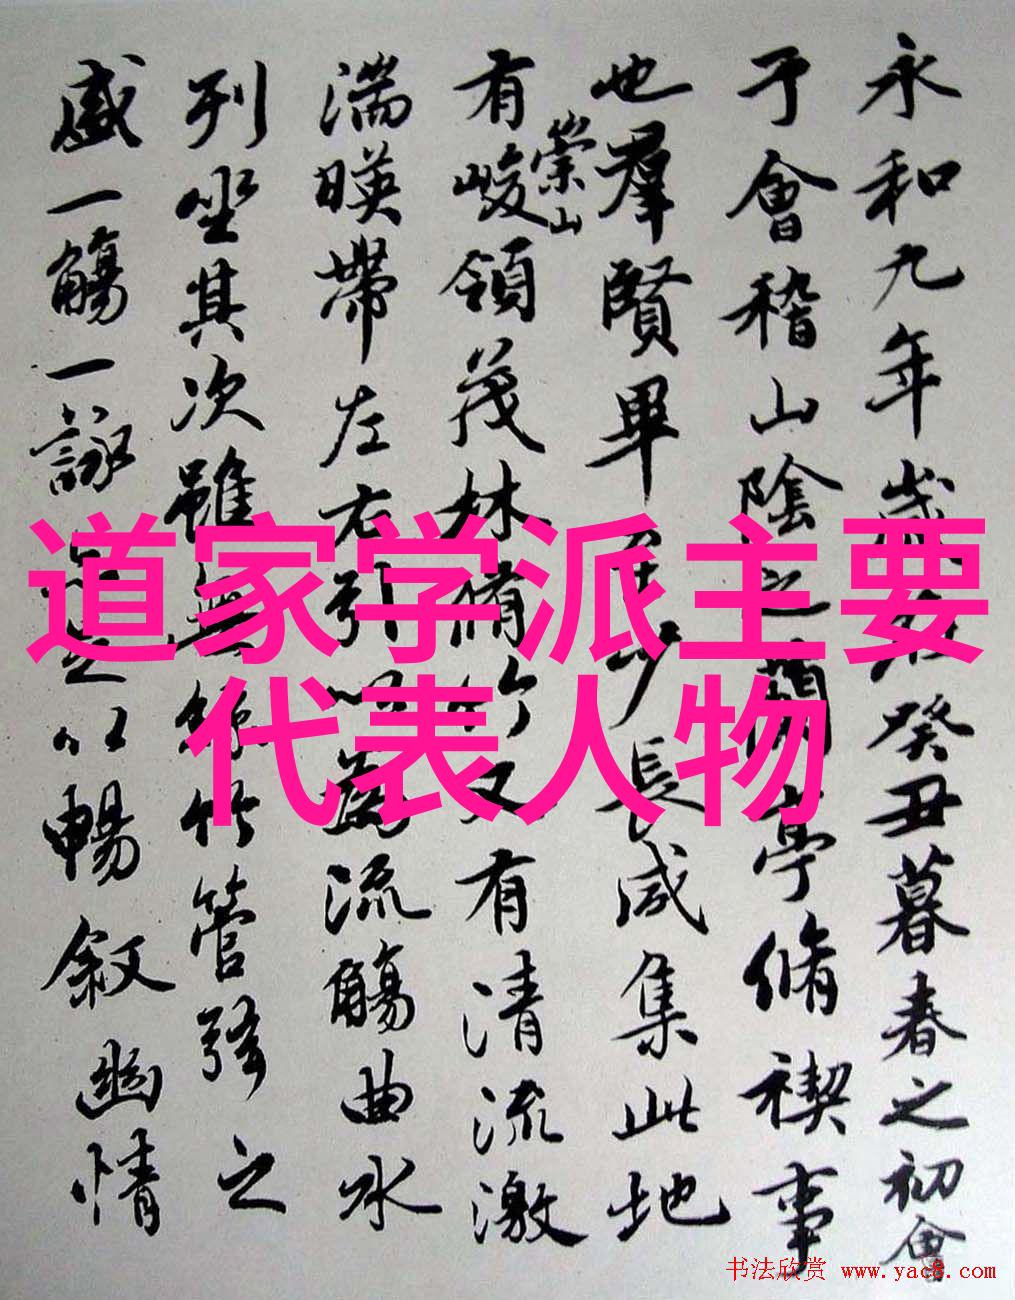 永和九年歲在癸丑暮春之初會
于會稽山陰之蘭亭脩禊事
也羣賢畢至少長咸集此地
有崇山峻領茂林脩竹又有清流激
湍暎帶左右引以為流觴曲水
列坐其次雖無絲竹管弦之
盛一觴一詠亦足以暢敘幽情
道家学派主要
代表人物
书法欣赏 www.yac8.com